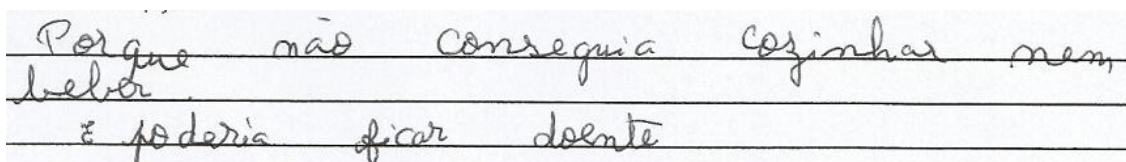 Porque não conseguia cozinhar nem
beber.
E poderia ficar doente